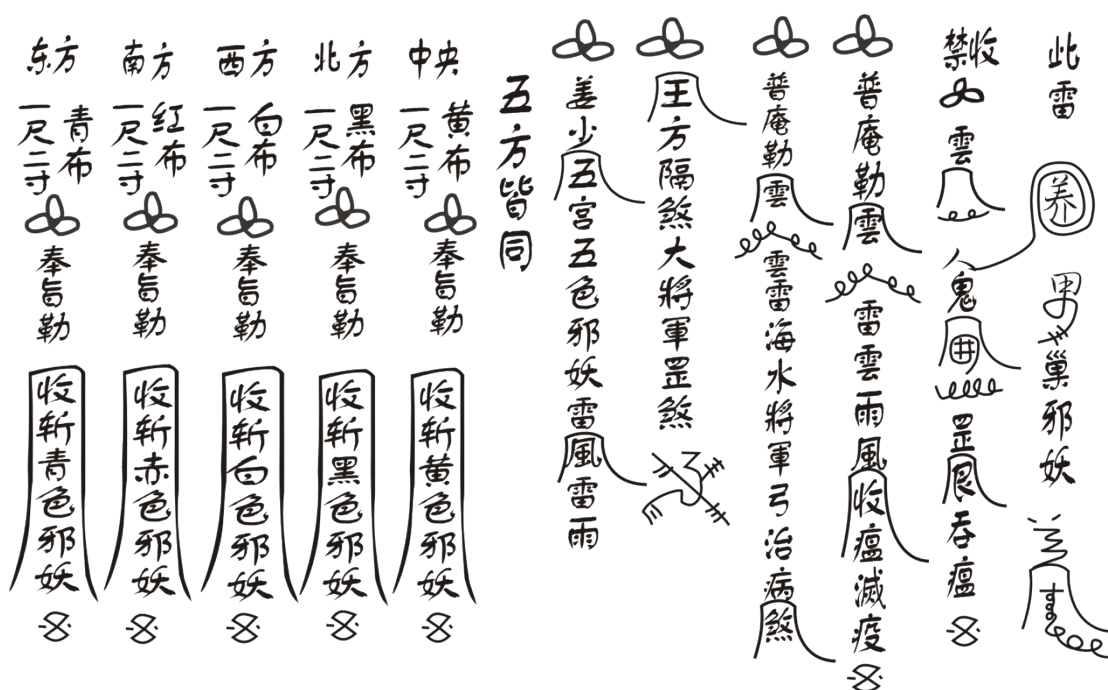 此雷
养
男巢邪妖
禁收
雲
人鬼
罡
吞瘟
普庵勒雲
雷雲雨風收瘟滅疫
普庵勒雲
雲雷海水將軍弓治病煞
王方隔煞大將軍罡煞
姜少五宫五色邪妖雷風雷雨
五方皆同
中央
黄布
一尺二寸
奉旨勒
收斩黄色邪妖
北方
黑布
一尺二寸
奉旨勒
收斩黑色邪妖
西方
白布
一尺二寸
奉旨勒
收斩白色邪妖
南方
红布
一尺二寸
奉旨勒
收斩赤色邪妖
东方
青布
一尺二寸
奉旨勒
收斩青色邪妖